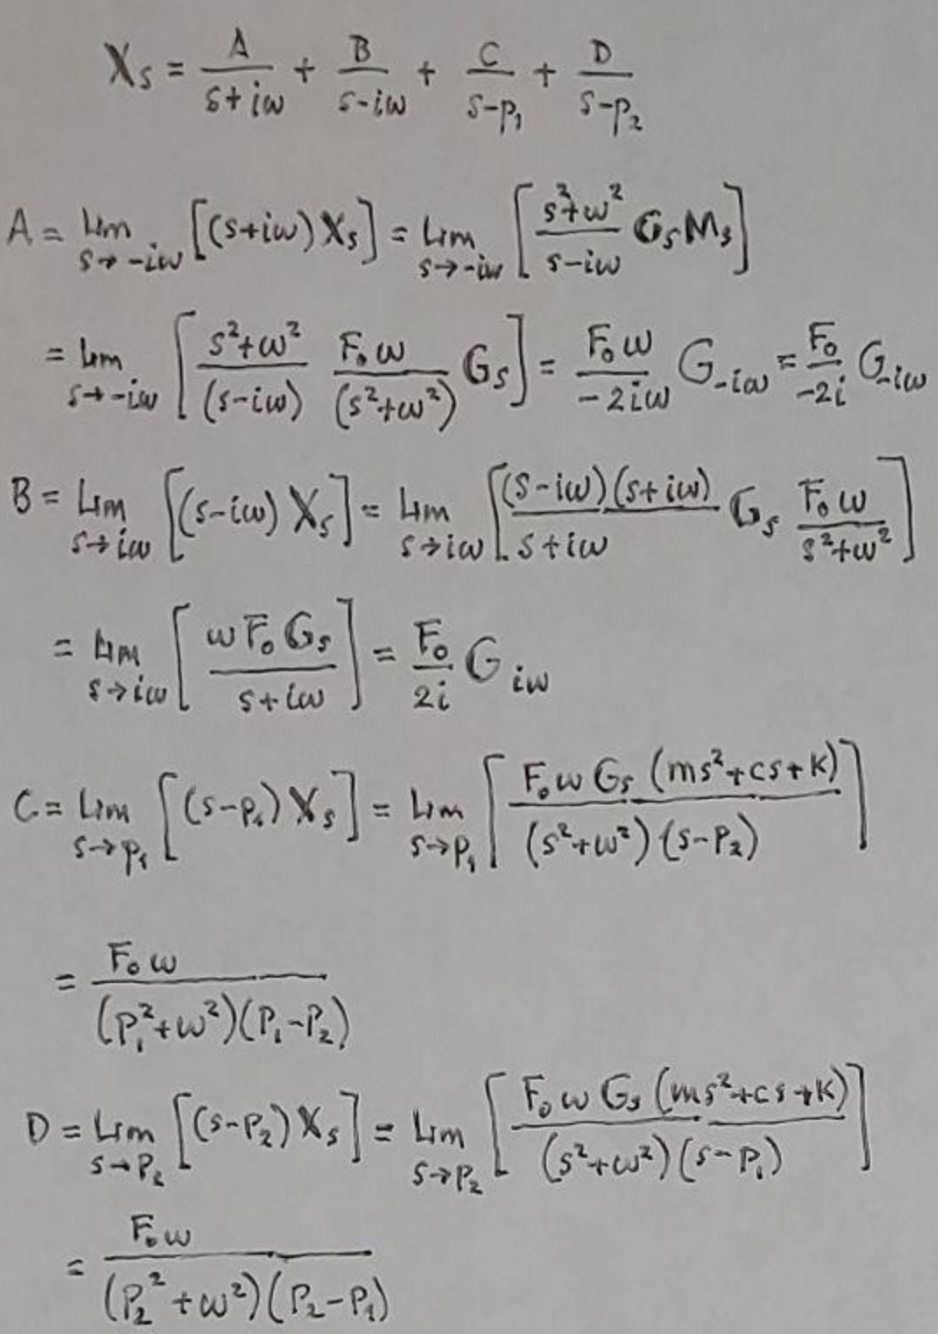 X_s = A/(s+iω) + B/(s-iω) + C/(s-p₁) + D/(s-p₂)
A = Lim_{s→-iω} [(s+iω) X_s] = Lim_{s→-iω} [(s²+ω²)/(s-iω) G_s M_s]
= Lim_{s→-iω} [(s²+ω²)/(s-iω) F₀ω/(s²+ω²) G_s] = F₀ω/(-2iω) G_{-iω} = F₀/(-2i) G_{-iω}
B = Lim_{s→iω} [(s-iω) X_s] = Lim_{s→iω} [(s-iω)(s+iω)/(s+iω) G_s F₀ω/(s²+ω²)]
= Lim_{s→iω} [ωF₀G_s/(s+iω)] = F₀/(2i) G_{iω}
C = Lim_{s→p₁} [(s-p₁) X_s] = Lim_{s→p₁} [F₀ω G_s (ms²+cs+k)/((s²+ω²)(s-p₂))]
= F₀ω/((p₁²+ω²)(p₁-p₂))
D = Lim_{s→p₂} [(s-p₂) X_s] = Lim_{s→p₂} [F₀ω G_s (ms²+cs+k)/((s²+ω²)(s-p₁))]
= F₀ω/((p₂²+ω²)(p₂-p₁))